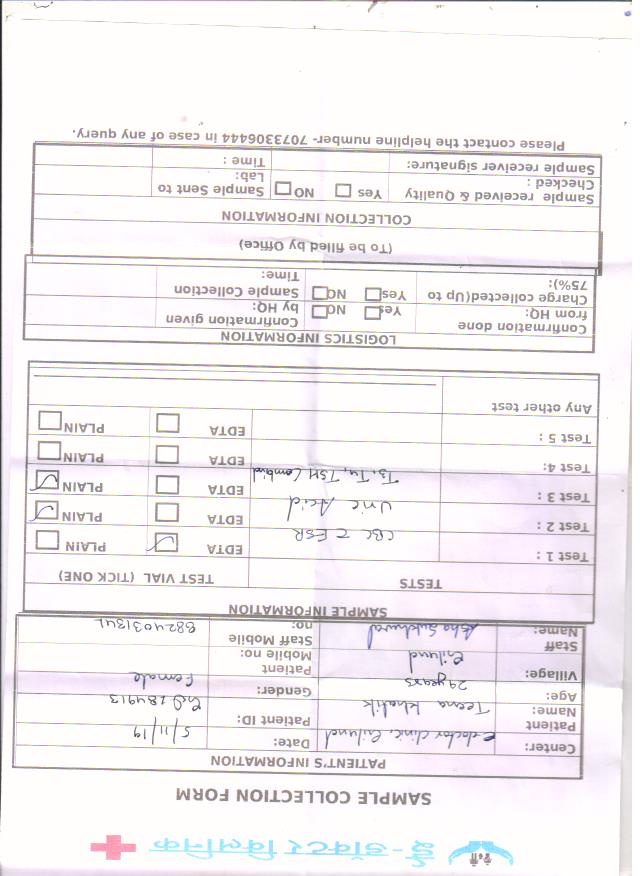 ई-डॉक्टर क्लिनिक
SAMPLE COLLECTION FORM
PATIENT'S INFORMATION
Center: e-doctor clinic, Gilund Date: 5/11/19
Patient Name: Teena Khatik Patient ID:
Age: 29 years Gender: Female
Village: Gilund Patient Mobile no:
Staff Name: Asha Sukhwal Staff Mobile no:
SAMPLE INFORMATION
TESTS TEST VIAL (TICK ONE)
Test 1 : CBC c ESR EDTA PLAIN
Test 2 : Uric Acid EDTA PLAIN
Test 3 : T3, T4, TSH Combind EDTA PLAIN
Test 4: EDTA PLAIN
Test 5 : EDTA PLAIN
Any other test
LOGISTICS INFORMATION
Confirmation done from HQ: Yes NO Confirmation given by HQ:
Charge collected(Up to 75%): Yes NO Sample Collection Time:
(To be filled by Office)
COLLECTION INFORMATION
Sample received & Quality Checked : Yes NO Sample Sent to Lab:
Sample receiver signature: Time :
Please contact the helpline number- 7073306444 in case of any query.